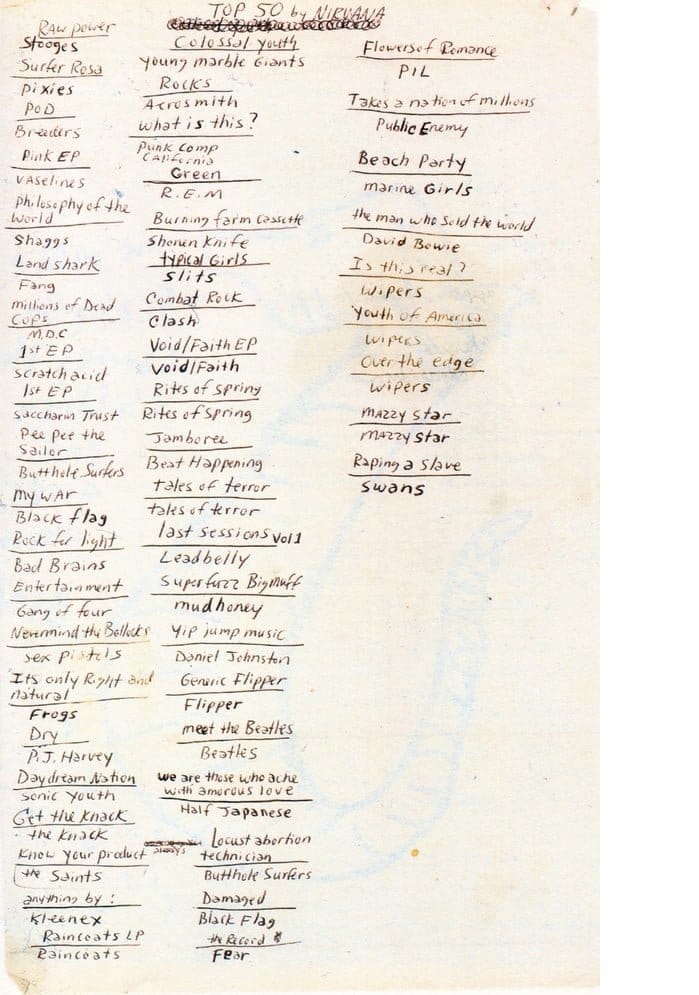 TOP 50 by NIRVANA
Raw power
Stooges
Surfer Rosa
Pixies
POD
Breeders
Pink EP
Vaselines
Philosophy of the
world
Shaggs
Land shark
Fang
millions of Dead
Cops
M.D.C
1st EP
Scratch acid
1st EP
Saccharin Trust
Pee Pee the
Sailor
Butthole Surfers
My war
Black flag
Rock for light
Bad Brains
Entertainment
Gang of four
Nevermind the Bollocks
sex pistols
Its only Right and
natural
Frogs
Dry
P.J. Harvey
Daydream Nation
Sonic Youth
Get the Knack
the Knack
Know Your product
the Saints
anything by :
Kleenex
Raincoats LP
Raincoats
Colossal Youth
Young marble Giants
Rocks
Aerosmith
What is this?
Punk Comp
California
Green
R.E.M
Burning farm Cassette
Shonen Knife
typical Girls
Slits
Combat Rock
Clash
Void/Faith EP
Void/Faith
Rites of Spring
Rites of Spring
Jamboree
Beat Happening
tales of terror
tales of terror
last sessions Vol 1
Leadbelly
Superfuzz Bigmuff
mudhoney
Yip jump music
Daniel Johnston
Generic Flipper
Flipper
meet the Beatles
Beatles
we are those who ache
with amorous love
Half Japanese
Locust abortion
technician
Butthole Surfers
Damaged
Black Flag
the Record
Fear
Flowers of Romance
PIL
Takes a nation of millions
Public Enemy
Beach Party
marine Girls
the man who sold the world
David Bowie
Is this real?
Wipers
Youth of America
Wipers
Over the edge
Wipers
mazzy star
mazzy star
Raping a Slave
Swans